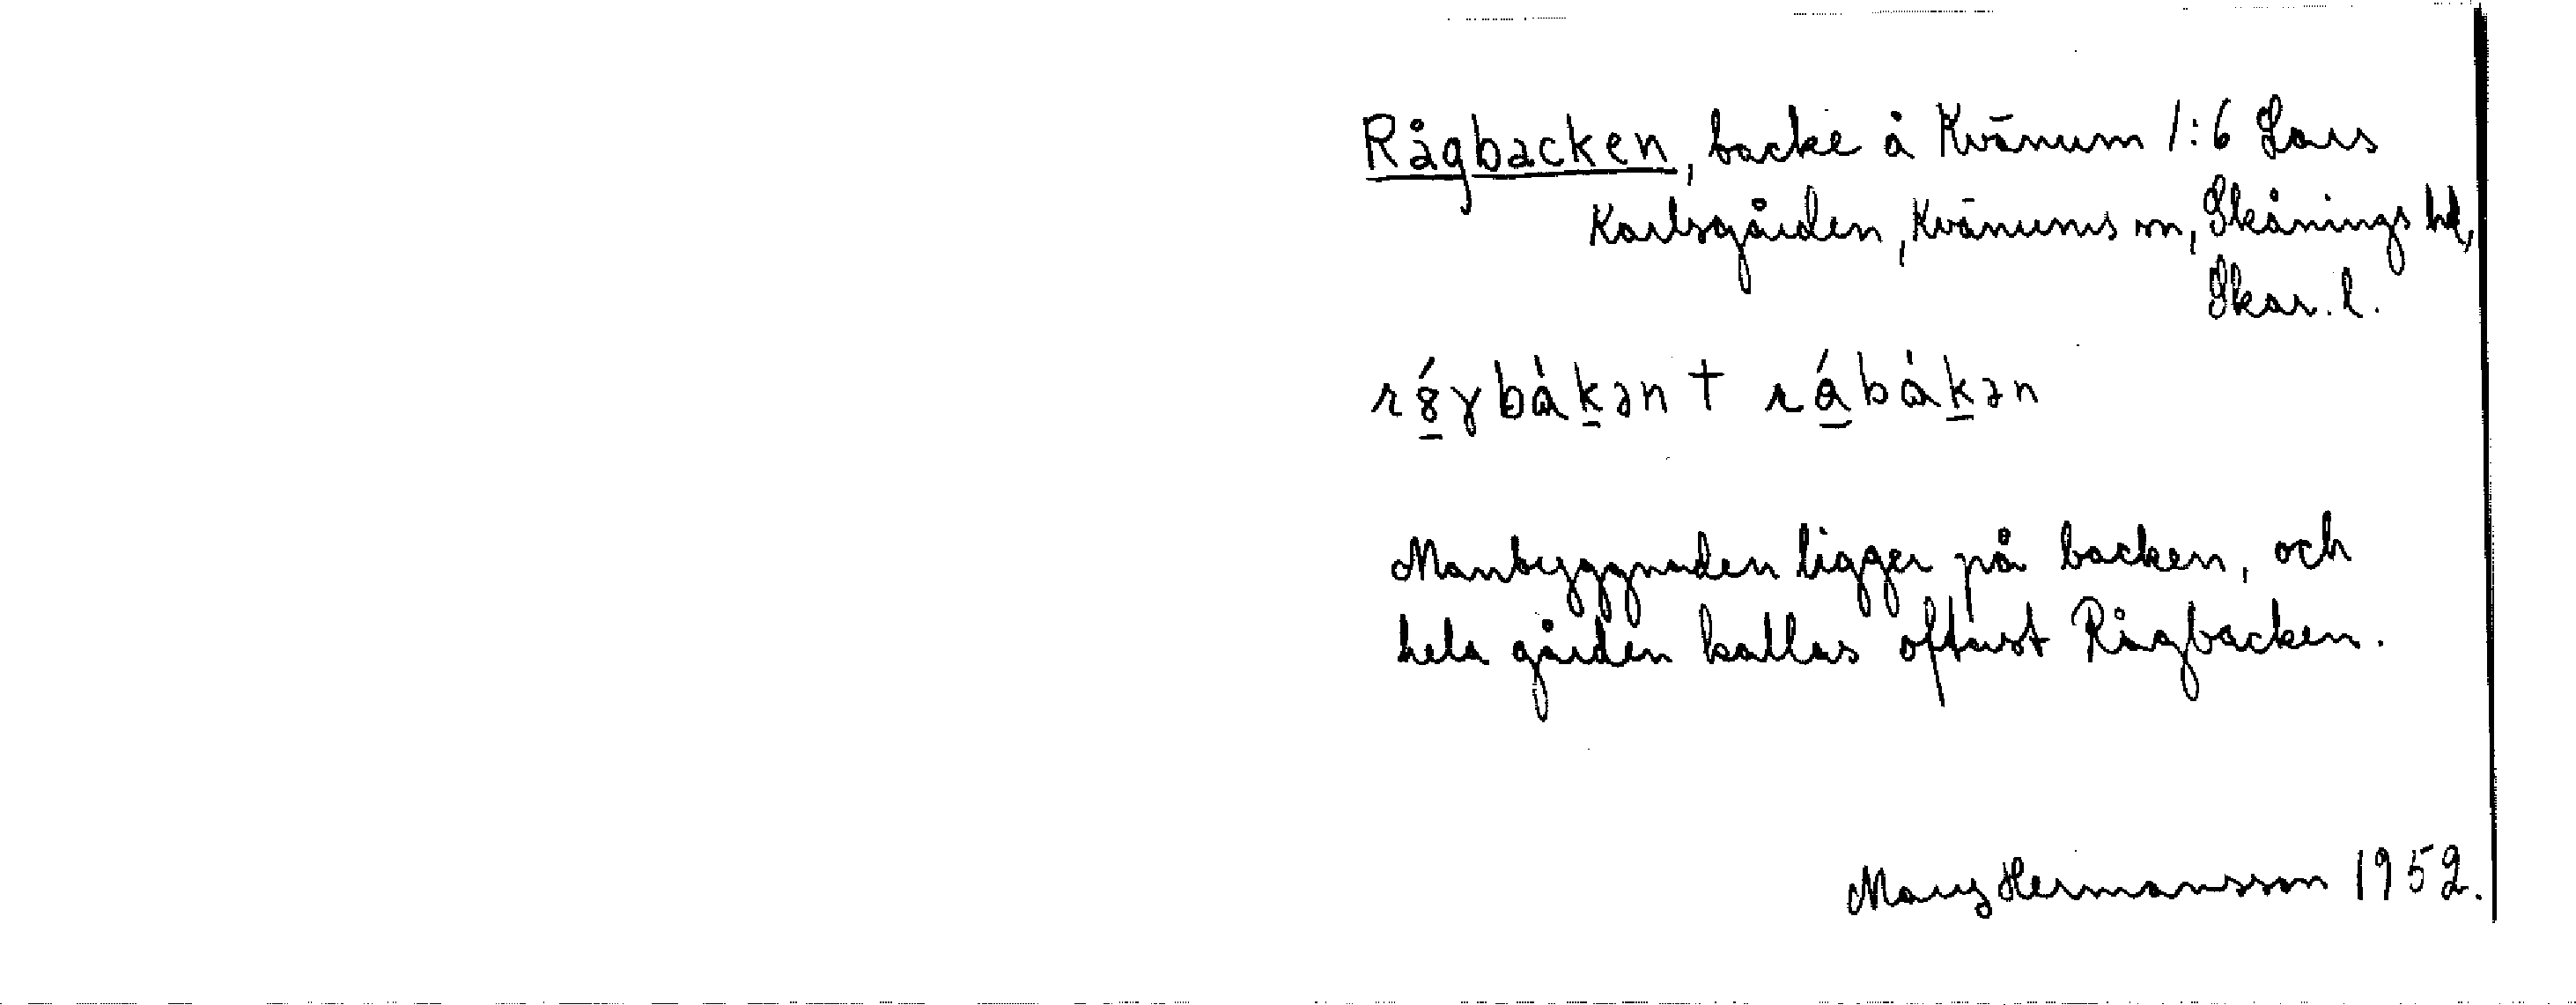 Rågbacken, backe å Kvänum 1:6 Lars
Karlsgården, Kvänums sn, Skånings hd,
Skar. l.
Manbyggnaden ligger på backen, och
hela gården kallas oftast Rågbacken.
Mary Hermansson 1952.